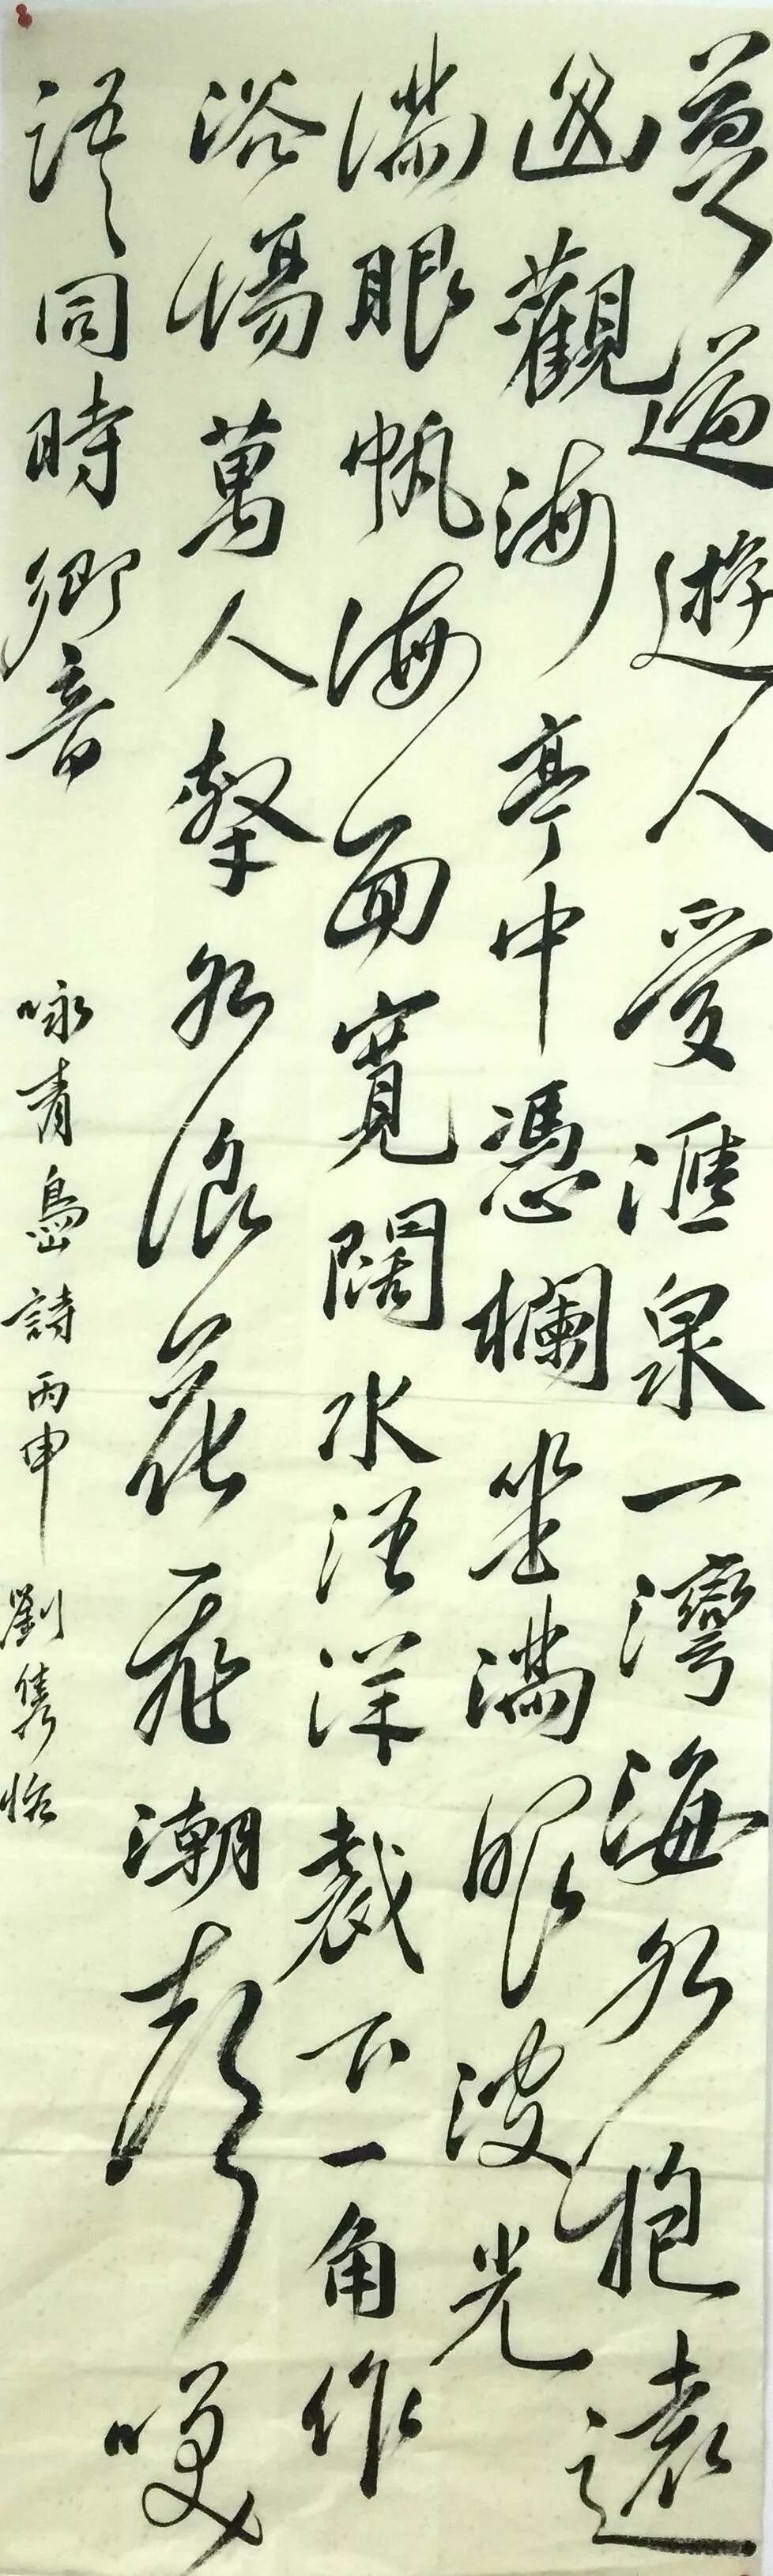 莫道遊人愛滙泉一灣海水抱遠
邊觀海亭中憑欄坐滿眼波光
滿眼帆海面寬闊水汪洋裁下一角作
浴場萬人擊水浪花飛潮聲笑
語同時鄉音
咏青島詩丙申劉雋怡